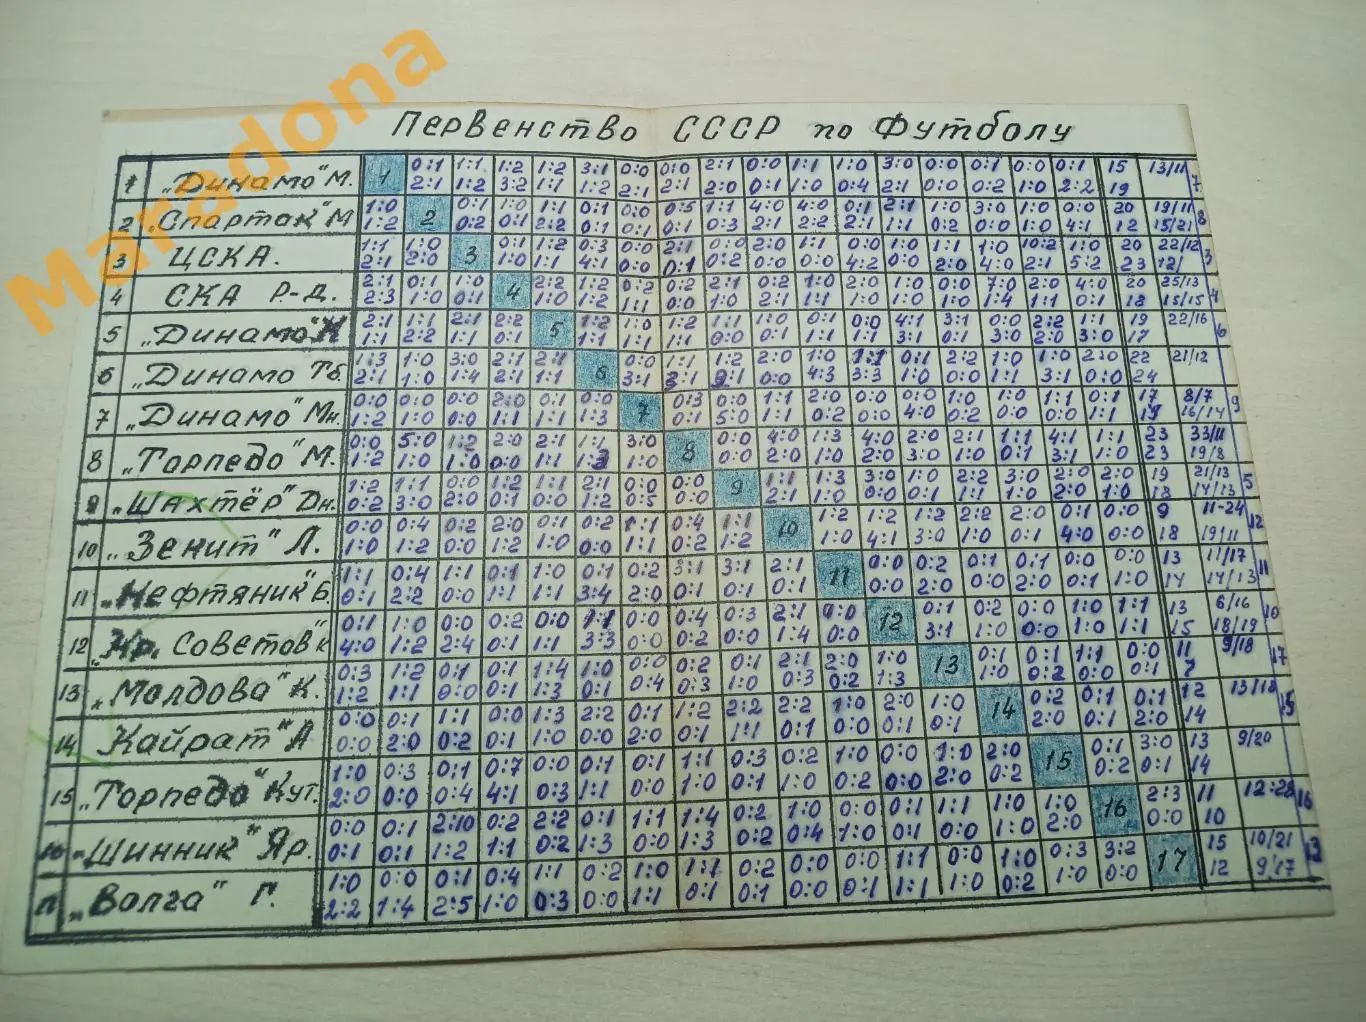 Maradona
Первенство СССР по Футболу
1 „Динамо" М. 1 0:1 1:1 1:2 1:2 3:1 0:0 0:0 2:1 0:0 1:1 1:0 3:0 0:0 0:1 0:0 0:1 15 13/11 7
2:1 1:2 3:2 1:1 1:2 2:1 2:1 2:0 0:1 1:0 0:4 2:1 0:0 0:2 1:0 2:2 19
2 „Спартак" М 1:0 2 0:1 1:0 1:1 0:1 0:0 0:5 1:1 4:0 4:0 0:1 2:1 1:0 3:0 1:0 0:0 20 19/11 8
1:2 0:2 0:1 2:2 0:1 0:1 0:1 0:3 2:1 2:2 2:1 1:1 0:2 0:0 1:0 4:1 12 15/21
3 ЦСКА. 1:1 1:0 3 0:1 1:2 0:3 0:0 2:1 0:0 2:0 0:1 0:0 1:0 1:1 1:0 10:2 1:0 20 22/12 3
2:1 2:0 1:0 1:1 4:1 0:0 0:1 0:2 0:0 0:0 4:2 0:0 2:0 4:0 2:1 5:2 23 12/
4 СКА Р-Д. 2:1 0:1 1:0 4 2:2 1:2 0:2 0:2 2:1 0:2 1:0 2:0 1:0 0:0 7:0 2:0 4:0 20 25/13 4
2:3 1:0 0:1 1:0 1:2 1:1 0:0 1:0 2:1 1:1 1:0 1:0 1:0 1:4 1:1 0:1 18 15/15
5 „Динамо" К 2:1 1:1 2:1 2:2 5 1:2 1:0 1:2 1:1 1:0 0:1 0:0 4:1 3:1 0:0 2:2 1:1 19 22/16 6
1:1 2:2 1:1 0:1 1:1 1:1 1:1 0:0 0:1 1:1 1:1 3:1 0:1 3:0 2:0 3:0 17
6 „Динамо Тб. 1:3 1:0 3:0 2:1 2:1 6 0:0 1:1 1:2 2:0 1:0 1:1 0:1 2:2 1:0 1:0 2:0 22 21/12
2:1 1:0 1:4 2:1 1:1 3:1 2:1 0:0 4:3 3:3 1:0 0:0 1:1 3:1 0:0 24
7 „Динамо" Мн. 0:0 0:0 0:0 2:0 0:1 0:0 7 0:3 0:0 1:1 2:0 0:0 0:0 1:0 1:0 1:1 0:1 17 8/7 9
1:2 1:0 0:0 1:1 1:1 1:3 0:1 5:0 1:1 0:2 0:0 4:0 0:2 0:0 0:0 1:1 19 16/14
8 „Торпедо" М. 0:0 5:0 1:2 2:0 2:1 1:1 3:0 8 0:0 4:0 1:3 4:0 2:0 2:1 1:1 4:1 1:1 23 33/11
1:2 1:0 1:0 0:0 1:1 1:0 0:0 2:0 1:1 2:0 3:0 1:0 0:1 3:1 1:0 23 19/8
9 „Шахтёр" Дн. 1:2 1:1 0:0 1:2 1:1 2:1 0:0 0:0 9 1:1 1:3 3:0 1:0 2:2 3:0 2:0 2:0 19 21/13 5
0:2 3:0 2:0 0:1 0:0 1:2 0:5 0:0 2:1 1:0 0:0 0:1 1:1 1:0 2:0 1:0 18 14/13
10 „Зенит" Л. 0:0 0:4 0:2 2:0 0:1 0:2 1:1 0:4 1:1 10 1:2 1:2 1:2 2:2 2:0 0:1 0:0 9 11-24 12
1:0 1:2 0:0 1:2 1:0 0:0 1:1 0:2 1:2 1:0 4:1 3:0 1:0 0:1 4:0 0:0 18 19/11
11 „Нефтяник" Б 1:1 0:4 1:1 0:1 1:0 0:1 0:2 3:1 3:1 2:1 11 0:0 0:2 0:1 0:1 0:0 0:0 13 11/17 11
0:1 2:2 0:0 1:1 1:1 3:4 2:0 0:1 0:1 0:1 0:0 2:0 0:0 2:0 0:1 1:0 14 14/13
12 „Кр. Советов" К 0:1 1:0 0:0 0:2 0:0 1:1 0:0 0:4 0:3 2:1 0:0 12 0:1 0:2 0:0 1:0 1:1 13 6/16 10
4:0 1:2 2:4 0:1 1:1 3:3 0:0 0:2 0:0 1:4 0:0 3:1 1:0 0:0 1:0 1:1 15 18/19
13 „Молдова" К. 0:3 1:2 0:1 0:1 1:4 1:0 0:0 0:2 0:1 2:1 2:0 1:0 13 0:1 0:1 1:1 0:0 11 9/18 17
1:2 1:1 0:0 0:1 1:3 0:1 0:4 0:3 1:0 0:3 0:2 1:3 1:0 0:2 0:0 0:1 7
14 Кайрат" А 0:0 0:1 1:1 0:0 1:3 2:2 0:1 1:2 2:2 2:2 1:0 2:0 1:0 14 0:2 0:1 0:1 12 13/18 15
0:0 2:0 0:2 0:1 1:0 0:0 2:0 0:1 1:1 0:1 0:0 0:1 0:1 2:0 0:1 2:0 14
15 „Торпедо" Кут. 1:0 0:3 0:1 0:7 0:0 0:1 0:1 1:1 0:3 0:2 1:0 0:0 1:0 2:0 15 0:1 3:0 13 9/20
2:0 0:0 0:4 4:1 0:3 1:1 0:0 1:0 0:1 1:0 0:2 0:0 2:0 0:2 0:2 0:1 14
16 „Шинник" Яр. 0:0 0:1 2:10 0:2 2:2 0:1 1:1 1:4 0:2 1:0 0:0 0:1 1:1 1:0 1:0 16 2:3 11 12:28 16
0:1 0:1 1:2 1:1 0:2 1:3 0:0 1:3 0:2 0:4 1:0 0:1 0:0 1:0 2:0 0:0 10
17 „Волга" Г. 1:0 0:0 0:1 0:4 1:1 0:2 1:0 1:1 0:2 0:0 0:0 1:1 0:0 1:0 0:3 3:2 17 15 10/21 13
2:2 1:4 2:5 1:0 0:3 0:0 1:1 0:1 0:1 0:0 0:1 1:1 1:0 0:2 1:0 0:0 12 9/17